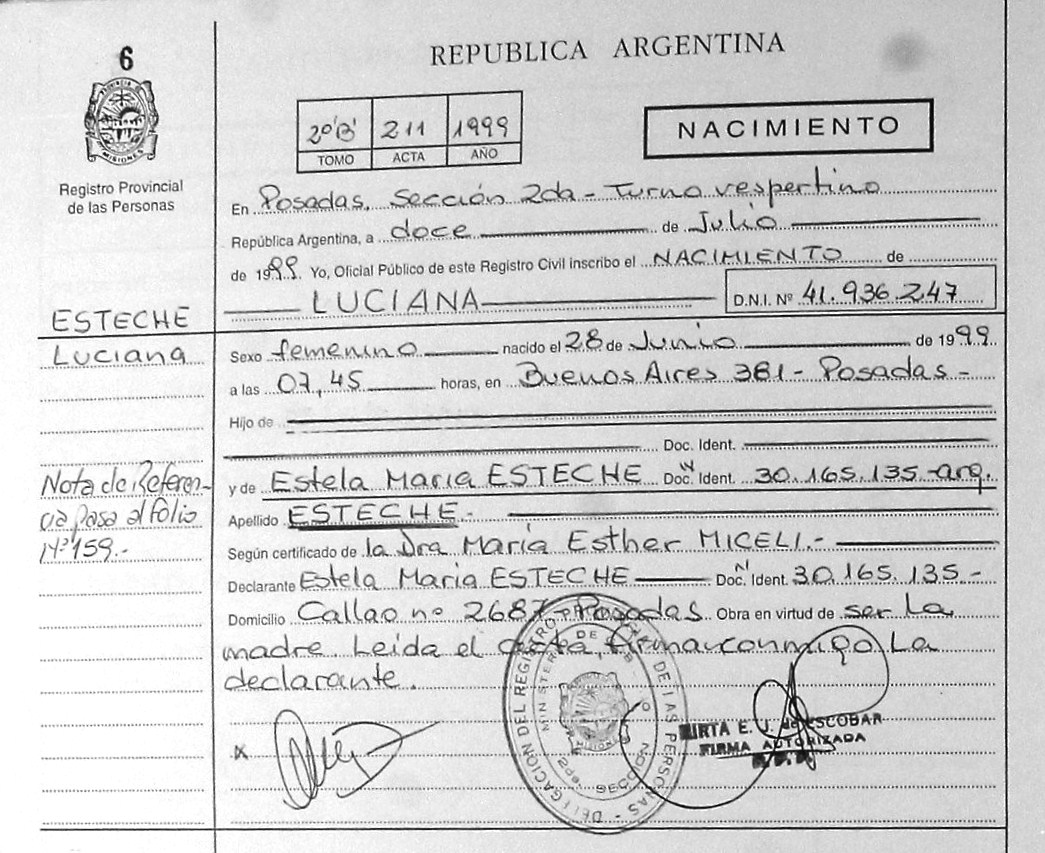 6
REPUBLICA ARGENTINA
PROVINCIA
MISIONES
Registro Provincial
de las Personas
2º'B' 211 1999
TOMO ACTA AÑO
NACIMIENTO
En Posadas, Sección 2da - Turno vespertino
República Argentina, a doce de Julio
de 1999. Yo, Oficial Público de este Registro Civil inscribo el NACIMIENTO de
LUCIANA D.N.I. Nº 41.936.247
ESTECHE
Luciana
Sexo femenino nacido el 28 de Junio de 1999
a las 07,45 horas, en Buenos Aires 381 - Posadas -
Hijo de
Doc. Ident.
y de Estela Maria ESTECHE Doc. N Ident. 30.165.135-arg.
Apellido ESTECHE.-
Nota de Referen-
cia pasa al folio
Nº 159.-
Según certificado de la Dra Maria Esther MICELI.-
Declarante Estela Maria ESTECHE Doc. N Ident. 30.165.135.-
Domicilio Callao nº 2687 Posadas. Obra en virtud de ser la
madre. Leida el acta, firma conmigo La
declarante.
DELEGACION DEL REGISTRO DE LAS PERSONAS
MINISTERIO DE
2da. SECCION
MISIONES
MIRTA E. J. de ESCOBAR
FIRMA AUTORIZADA